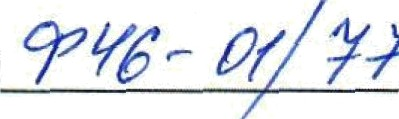 Ф46-01/77